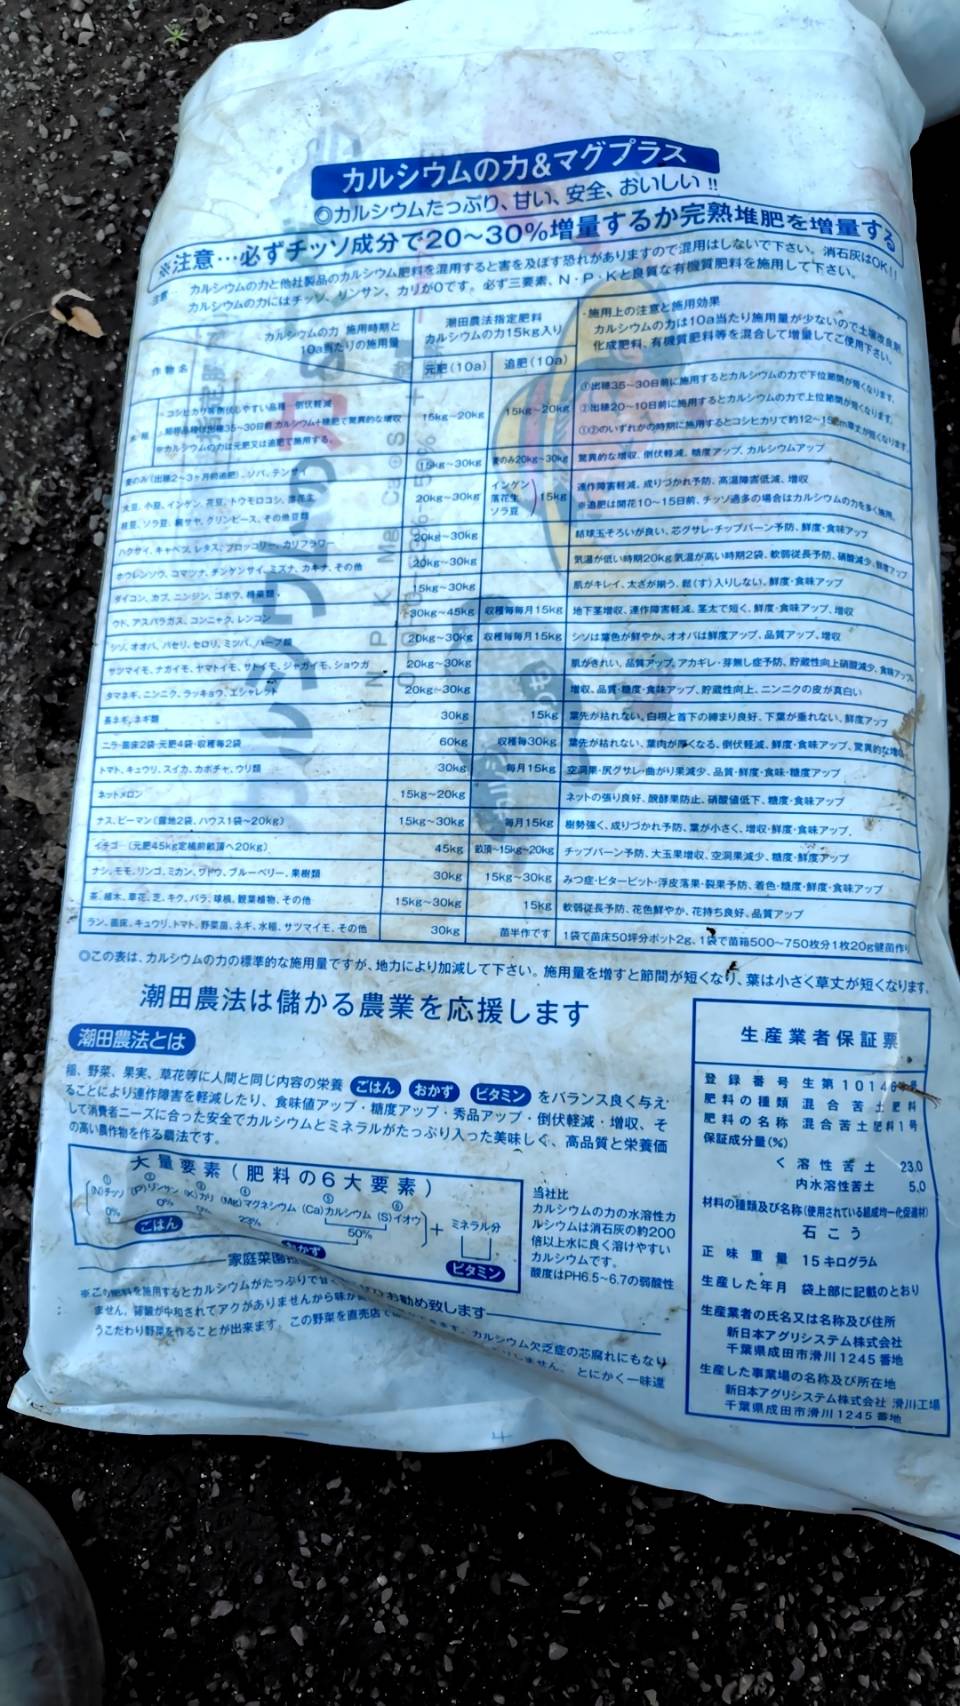 カルシウムの力&マグプラス
◎カルシウムたっぷり、甘い、安全、おいしい!!
※注意…必ずチッソ成分で20～30%増量するか完熟堆肥を増量する
注意… カルシウムの力と他社製品のカルシウム肥料を混用すると害を及ぼす恐れがありますので混用はしないで下さい。消石灰はOK!!
カルシウムの力にはチッソ、リンサン、カリが0です。必ず三要素、N・P・Kと良質な有機質肥料を施用して下さい。
カルシウムの力 施用時期と
10a当たりの施用量
作物名
潮田農法指定肥料
カルシウムの力15kg入り
元肥(10a) 追肥(10a)
・施用上の注意と施用効果
カルシウムの力は10a当たり施用量が少ないので土壌改良剤、
化成肥料、有機質肥料等を混合して増量してご使用下さい。
・コシヒカリ等倒伏しやすい品種…倒伏軽減
※カルシウムの力は元肥又は追肥で施用する。
15kg～20kg 15kg～20kg
①出穂35～30日前に施用するとカルシウムの力で下位節間が短くなります。
②出穂20～10日前に施用するとカルシウムの力で上位節間が短くなります。
①②のいずれかの時期に施用するとコシヒカリで約12～15cm草丈が短くなります。
麦のみ(出穂2～3ヶ月前追肥)、ソバ、テンサイ 15kg～30kg 麦のみ20kg～30kg 驚異的な増収、倒伏軽減、糖度アップ、カルシウムアップ
大豆、小豆、インゲン、花豆、トウモロコシ、落花生
枝豆、ソラ豆、絹サヤ、グリンピース、その他豆類
20kg～30kg インゲン 落花生 ソラ豆 15kg
連作障害軽減、成りづかれ予防、高温障害低減、増収
※追肥は開花10～15日前、チッソ過多の場合はカルシウムの力を多く施用。
ハクサイ、キャベツ、レタス、ブロッコリー、カリフラワー 20kg～30kg 結球玉そろいが良い、芯グサレ・チップバーン予防、鮮度・食味アップ
ホウレンソウ、コマツナ、チンゲンサイ、ミズナ、カキナ、その他 20kg～30kg 気温が低い時期20kg 気温が高い時期2袋、軟弱徒長予防、硝酸減少、鮮度アップ
ダイコン、カブ、ニンジン、ゴボウ、根菜類 15kg～30kg 肌がキレイ、太さが揃う、鬆(す)入りしない、鮮度・食味アップ
ウド、アスパラガス、コンニャク、レンコン 30kg～45kg 収穫毎毎月15kg 地下茎増収、連作障害軽減、茎太で短く、鮮度・食味アップ、増収
シソ、オオバ、パセリ、セロリ、ミツバ、ハーブ類 20kg～30kg 収穫毎毎月15kg シソは葉色が鮮やか、オオバは鮮度アップ、品質アップ、増収
サツマイモ、ナガイモ、ヤマトイモ、サトイモ、ジャガイモ、ショウガ 20kg～30kg 肌がきれい、品質アップ、アカギレ・芽無し症予防、貯蔵性向上硝酸減少、食味アップ
タマネギ、ニンニク、ラッキョウ、エシャレット 20kg～30kg 増収、品質・糖度・食味アップ、貯蔵性向上、ニンニクの皮が真白い
長ネギ、ネギ類 30kg 15kg 葉先が枯れない、白根と首下の締まり良好、下葉が垂れない、鮮度アップ
ニラ…苗床2袋 元肥4袋…収穫毎2袋 60kg 収穫毎30kg 葉先が枯れない、葉肉が厚くなる、倒伏軽減、鮮度・食味アップ、驚異的な増収
トマト、キュウリ、スイカ、カボチャ、ウリ類 30kg 毎月15kg 空洞果・尻グサレ・曲がり果減少、品質・鮮度・食味・糖度アップ
ネットメロン 15kg～20kg ネットの張り良好、醗酵果防止、硝酸値低下、糖度・食味アップ
ナス、ピーマン(露地2袋、ハウス1袋～20kg) 15kg～30kg 毎月15kg 樹勢強く、成りづかれ予防、葉が小さく、増収・鮮度・食味アップ、
イチゴ…(元肥45kg定植前畝頂へ20kg) 45kg 畝頂～15kg～20kg チップバーン予防、大玉果増収、空洞果減少、糖度・鮮度アップ
ナシ、モモ、リンゴ、ミカン、ブドウ、ブルーベリー、果樹類 30kg 15kg～30kg みつ症・ビターピット・浮皮落果・裂果予防、着色・糖度・鮮度・食味アップ
茶、植木、草花、芝、キク、バラ、球根、観葉植物、その他 15kg～30kg 15kg 軟弱徒長予防、花色鮮やか、花持ち良好、品質アップ
ラン、苗床、キュウリ、トマト、野菜苗、ネギ、水稲、サツマイモ、その他 30kg 苗半作です 1袋で苗床50坪分ポット2g、1袋で苗箱500～750枚分1枚20g健苗作り
◎この表は、カルシウムの力の標準的な施用量ですが、地力により加減して下さい。施用量を増すと節間が短くなり、葉は小さく草丈が短くなります。
潮田農法は儲かる農業を応援します
潮田農法とは
稲、野菜、果実、草花等に人間と同じ内容の栄養 ごはん おかず ビタミン をバランス良く与え
ることにより連作障害を軽減したり、食味値アップ・糖度アップ・秀品アップ・倒伏軽減・増収、そ
して消費者ニーズに合った安全でカルシウムとミネラルがたっぷり入った美味しく、高品質と栄養価
の高い農作物を作る農法です。
大量要素(肥料の6大要素)
① ② ③ ④ ⑤ ⑥
(N)チッソ (P)リンサン (K)カリ (Mg)マグネシウム (Ca)カルシウム (S)イオウ + ミネラル分
0% 0% 0% 23% 50%
ごはん おかず ビタミン
当社比
カルシウムの力の水溶性カ
ルシウムは消石灰の約200
倍以上水に良く溶けやすい
カルシウムです。
酸度はPH6.5～6.7の弱酸性
家庭菜園 お勧め致します
※この肥料を施用するとカルシウムがたっぷりで甘 カルシウム欠乏症の芯腐れにもなり
ません。硝酸が中和されてアクがありませんから味が とにかく一味違
うこだわり野菜を作ることが出来ます。この野菜を直売店で
生産業者保証票
登録番号 生第10146
肥料の種類 混合苦土肥料
肥料の名称 混合苦土肥料1号
保証成分量(%)
く溶性苦土 23.0
内水溶性苦土 5.0
材料の種類及び名称(使用されている組成均一化促進材)
石こう
正味重量 15キログラム
生産した年月 袋上部に記載のとおり
生産業者の氏名又は名称及び住所
新日本アグリシステム株式会社
千葉県成田市滑川1245番地
生産した事業場の名称及び所在地
新日本アグリシステム株式会社 滑川工場
千葉県成田市滑川1245番地